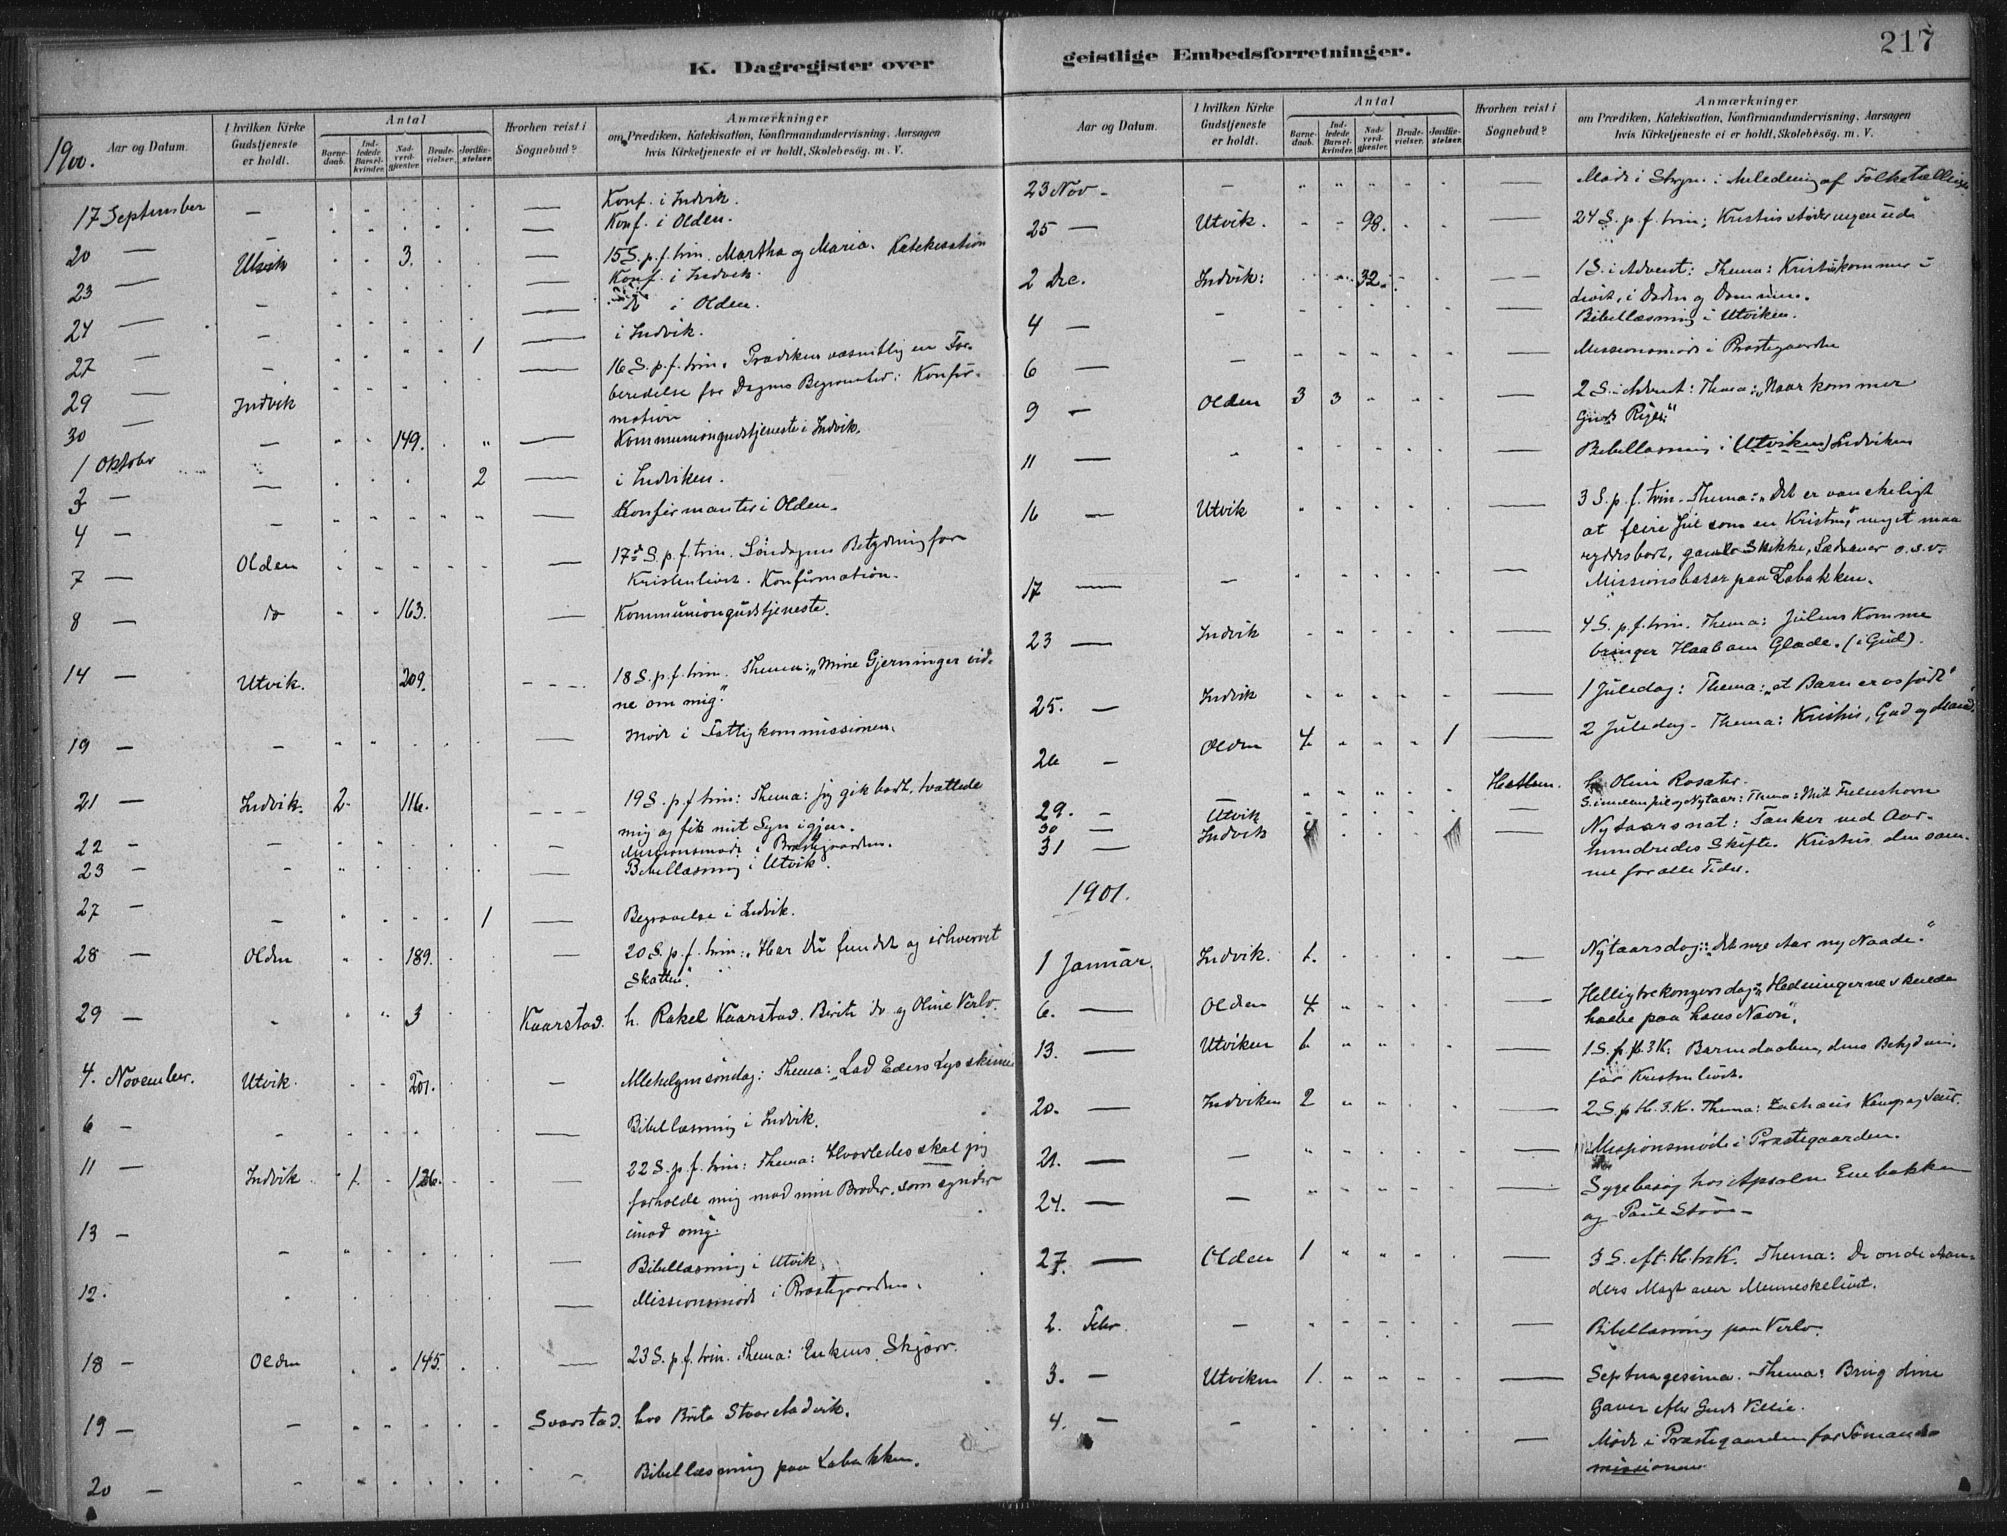 K. Dagregister over geistlige Embedsforretninger.
217
1900.
Aar og Datum.
I hvilken Kirke Gudstjeneste er holdt.
Antal
Barnedaab.
Indledede Barselkvinder.
Nadverdgjæster.
Brudevielser.
Jordfæstelser.
Hvorhen reist i Sognebud?
Anmærkninger
om Prædiken, Katekisation, Konfirmandundervisning, Aarsagen
hvis Kirketjeneste ei er holdt, Skolebesøg. m. V.
17 September — Konf. i Indvik.
20 — Konf. i Olden.
23 — Utvik 3. 15 S. p. f. trin. Martha og Maria. Katekisation
24 — Konf. i Indvik.
27 — i Olden.
29 — 1 i Indvik.
30 — Indvik 16 S. p. f. trin. Prædiken væsentlig en For-
beredelse for Dagens Begivenhed: Konfir-
mation
1 Oktober — 149. Kommuniongudstjeneste i Indvik.
2 — 2 i Indviken.
4 — Konfirmanter i Olden.
7 — Olden 17de S. p. f. trin. Søndagens Betydning for
Kristenlivet. Konfirmation.
8 — do 163. Kommuniongudstjeneste.
14 — Utvik. 209. 18 S. p. f. trin. Thema: „Mine Gjerninger vid-
ne om mig."
19 — Møde i Fattigkommissionen.
21 — Indvik. 2 116. 19 S. p. f. trin: Thema: jeg gik bort, tvættede
mig og fik mit Syn igjen.
22 — Missionsmøde i Præstegaarden.
23 — Bibellæsning i Utvik.
27 — 1 Begravelse i Indvik.
28 — Olden 189. 20 S. p. f. trin: „Har Du fundet og erhvervet
Skatten".
29 — 3 Kaarstad. h. Rakel Kaarstad. Birte do og Oline Verlo.
4. November. Utvik. 201. Allehelgensøndag: Thema: „Lad Eders Lys skinne
6 — Bibellæsning i Indvik.
11 — Indvik 1. 126. 22 S. p. f. trin: Thema: Hvorledes skal jeg
forholde mig mod min Broder, som synder
imod mig.
13 — Bibellæsning i Utvik.
12. Missionsmøde i Præstegaarden.
18 — Olden 145. 23 S. p. f. trin. Thema: Enkens Skjærv.
19 — Svarstad. hos Brita
20 — Bibellæsning paa Løbakken.
Aar og Datum.
I hvilken Kirke Gudstjeneste er holdt.
Antal
Barnedaab.
Indledede Barselkvinder.
Nadverdgjæster.
Brudevielser.
Jordfæstelser.
Hvorhen reist i Sognebud?
Anmærkninger
om Prædiken, Katekisation, Konfirmandundervisning, Aarsagen
hvis Kirketjeneste ei er holdt, Skolebesøg. m. V.
23 Nov — Møde i Stryn i Anledning af Folketælling
25 — Utvik. 98. 24 S. p. f. trin:
2 Dec. Indvik: 32. 1 S. i Advent: Thema: Kristi kommer i
livet, i Døden og Dommen.
4 — Bibellæsning i Utviken.
6 — Missionsmøde i Præstegaarden
9 — Olden 3 3 2 S. i Advent: Thema: „Naar kommer
Guds Rige."
11 — Bibellæsning i (Utviken) Indviken
16 — Utvik 3 S. p. f. trin. Thema: „Det er vanskeligt
at feire Jul som en Kristen," meget maa
ryddes bort, gamle Skikke, Sædvaner o. s. v.
17 — Missionsbasar paa Løbakken.
23 — Indvik 4 S. p. f. trin. Thema: Julens Komme
bringer Haab om Glæde. (i Gud).
25. — Indvik 1 Juledag: Thema: „et Barn er os født"
26 — Olden 4 1 2 Juledag. Thema: Kristus, Gud og Mand.
29. — h. Oline Rosæter.
30 — Utvik S. imellem Jul og Nytaar: Thema: Mit
31 — Indvik Nytaarsnat: Tanker ved Aar-
hundredes Skifte. Kristus den sam-
me for alle Tider.
1901.
1 Januar. Indvik. 1. Nytaarsdag: „Det nye Aar ny Naade."
6. — Olden 4 Helligtrekongersdag: „Hedningerne skulle
haabe paa hans Navn".
13. — Utviken 1 S. p. H. 3 K: Barnedaaben, dens Betydning
for Kristenlivet.
20. — Indviken 2 2 S. p. H. 3. K. Thema: Zachæus
21. — Missionsmøde i Præstegaarden.
24. — Sygebesøg hos Apsalon Enebakken
og Paul
27. — Olden 1 3 S. eft. H. tr. K. Thema: De onde Aan-
ders Magt over Menneskelivet.
2. Febr. — Bibellæsning paa Verlo.
3. — Utviken 1. Septuagesima. Thema: Brug dine
Gaver efter Guds Villie.
4. — Møde i Præstegaarden for Sømands-
missionen